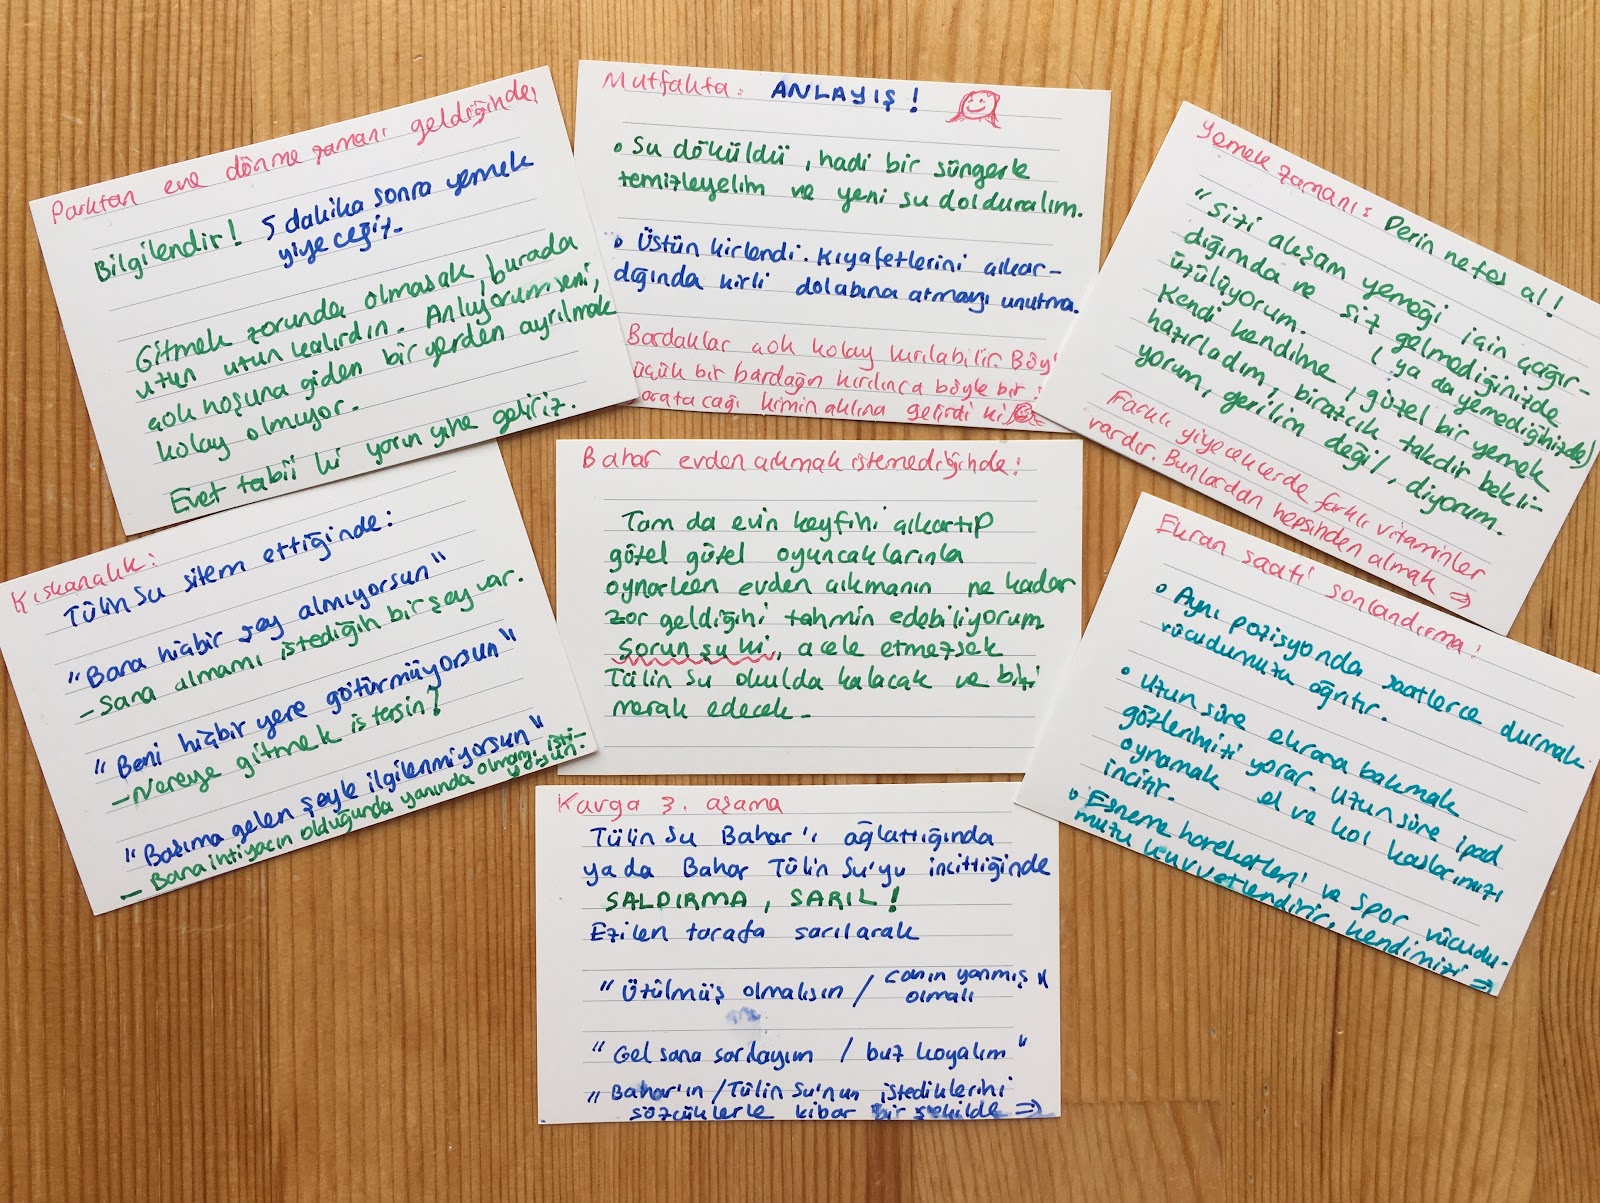 Parktan eve dönme zamanı geldiğinde;
Bilgilendir! 5 dakika sonra yemek
yiyeceğiz.
Gitmek zorunda olmasak, burada
uzun uzun kalırdın. Anlıyorum seni,
çok hoşuna giden bir yerden ayrılmak
kolay olmuyor.
Evet tabii ki yarın yine geliriz.
Mutfakta: ANLAYIŞ!
• Su döküldü, hadi bir süngerle
temizleyelim ve yeni su dolduralım.
• Üstün kirlendi. Kıyafetlerini çıkar-
dığında kirli dolabına atmayı unutma.
Bardaklar çok kolay kırılabilir.
bir bardağın kırılınca böyle bir
kimin aklına gelirdi ki
Yemek zamanı: Derin nefes al!
"Sizi akşam yemeği için çağır-
dığımda ve siz gelmediğinizde
üzülüyorum. (ya da yemediğinizde)
Kendi kendime, güzel bir yemek
hazırladım, birazcık takdir bekli-
yorum, gerilim değil, diyorum.
Farklı yiyeceklerde farklı vitaminler
vardır. Bunlardan hepsinden almak ⇒
Kıskançlık:
Tülin Su sitem ettiğinde:
"Bana hiçbir şey almıyorsun"
- Sana almamı istediğin bir şey var.
"Beni hiçbir yere götürmüyorsun"
- Nereye gitmek istersin?
"Başıma gelen şeyle ilgilenmiyorsun"
- Bana ihtiyacın olduğunda yanında olmamı isti-
yorsun.
Bahar evden çıkmak istemediğinde:
Tam da evin keyfini çıkartıp
güzel güzel oyuncaklarınla
oynarken evden çıkmanın ne kadar
zor geldiğini tahmin edebiliyorum.
Sorun şu ki, acele etmezsek
Tülin Su okulda kalacak ve bizi
merak edecek.
Ekran saati sonlandırma:
• Aynı pozisyonda saatlerce durmak
vücudumuzu ağrıtır.
• Uzun süre ekrana bakmak
gözlerimizi yorar. Uzun süre ipad
oynamak el ve kol kaslarımızı
incitir.
• Esneme hareketleri ve spor vücudu-
muzu kuvvetlendirir, kendimizi ⇒
Kavga 3. aşama
Tülin Su Bahar'ı ağlattığında
ya da Bahar Tülin Su'yu incittiğinde
SALDIRMA, SARIL!
Ezilen tarafa sarılarak
"Üzülmüş olmalısın / canın yanmış
olmalı"
"Gel sana sarılayım / buz koyalım"
"Bahar'ın / Tülin Su'nun istediklerini
sözcüklerle kibar bir şekilde ⇒